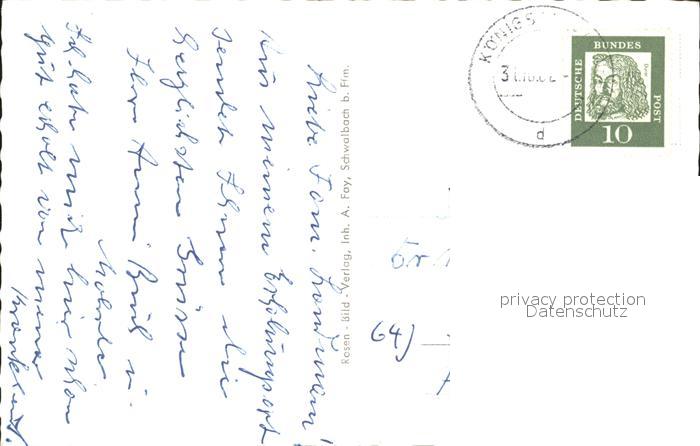 Liebe Fam.
Aus meinem Erholungsort
sende Ihnen die
herzlichsten Grüsse
Ihre Anni u.
Ich habe mich hier schon
gut erholt von meiner
Krankheit.
Rosen - Bild - Verlag, Inh. A. Fay, Schwalbach b. Ffm.
KÖNIGS
d
DEUTSCHE
BUNDES
POST
10
Fr
64)
privacy protection
Datenschutz